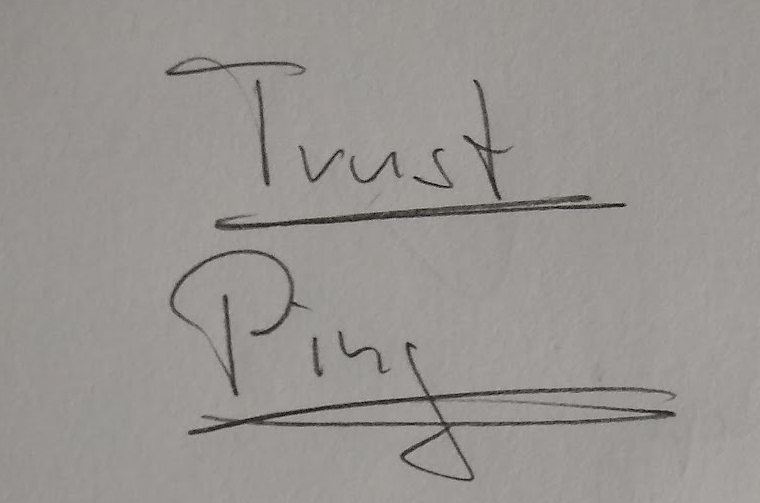 Trust
Ping